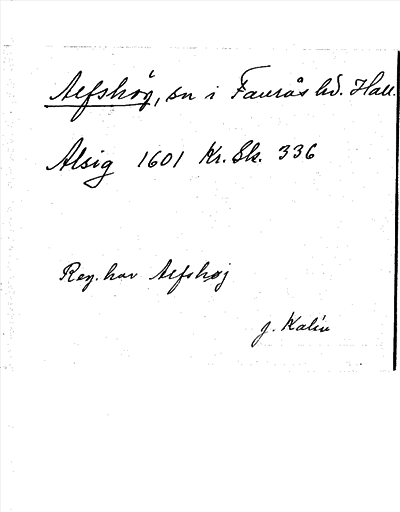 Alfshög, sn i Faurås hd. Hall.
Alsig 1601 Kr. Sk. 336
Reg. har Alfshøj
g. Kalén